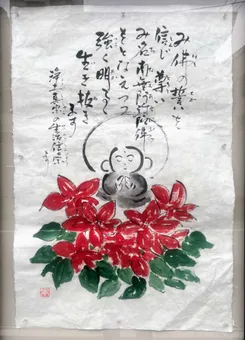 み佛の誓いを
信じ尊い
み名南無阿弥陀佛
をとなえつつ
強く明るく
生き抜き
ます
浄土真宗の生活信条
より